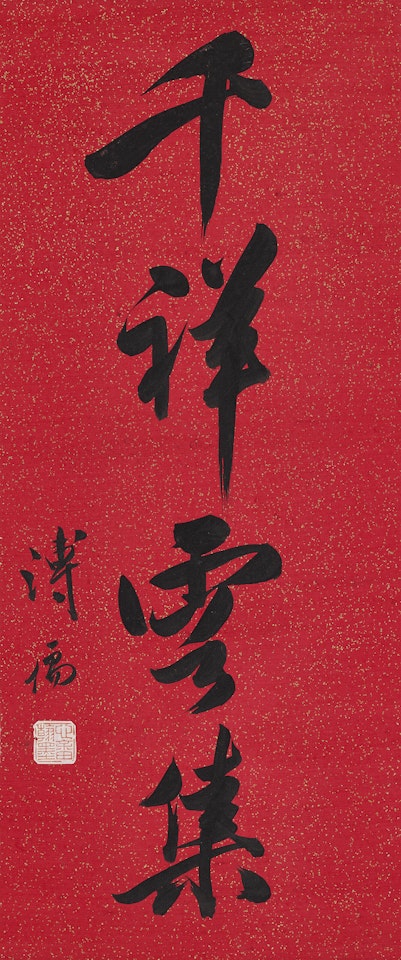 千祥雲集
溥儒